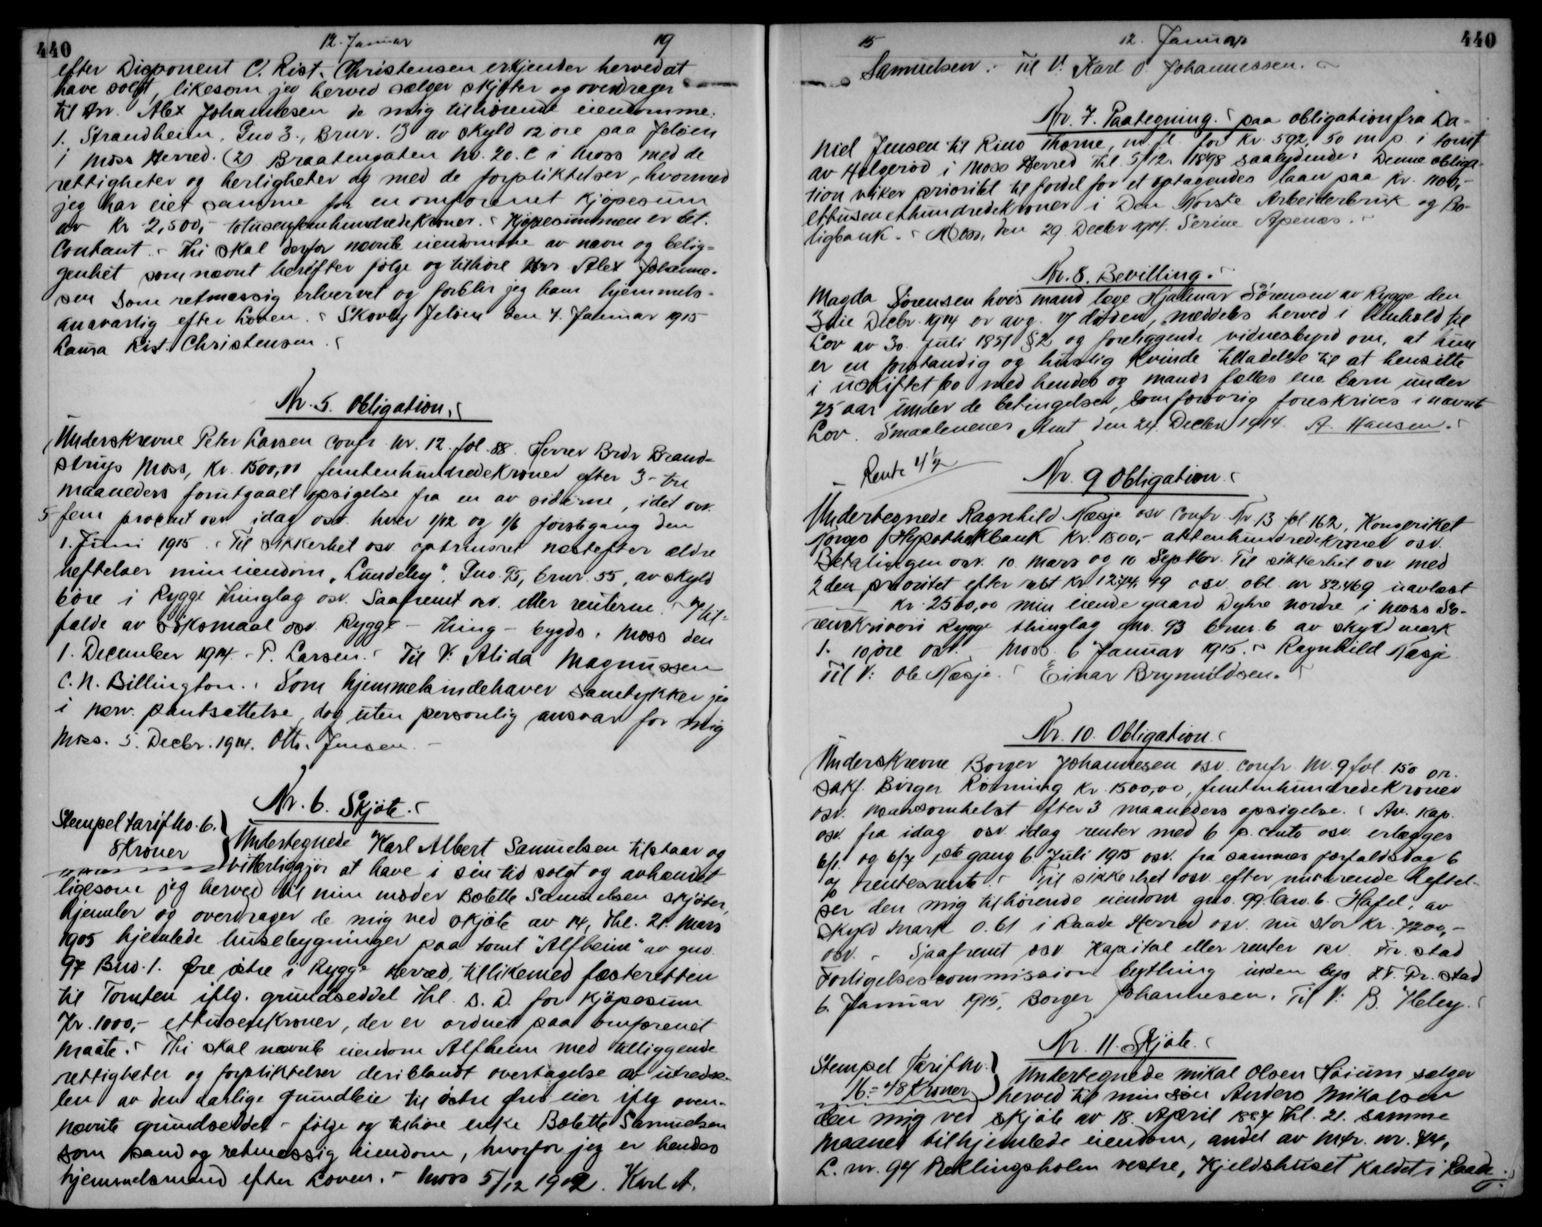 440
12. Januar
19
efter Disponent C. Rist. Christensen erkjender herved at
have solgt, likesom jeg herved sælger skjøter og overdrager
til Hr. Alex Johannesen de mig tilhörende eiendomme:
1. Strandheim, Gno 3., Brnr. 13 av skyld 12 øre paa Jeløen
i Moss Herred. (2) Braatengaten No. 20. C i Moss med de
rettigheter og herligheter og med de forpliktelser, hvormed
jeg har eiet samme for en omforenet kjøpesum
av Kr 2,500,- totusenfemhundredekroner. Kjøpesummen er bet.
Contant. Thi skal derfor nævnte eiendomme av navn og belig-
genhet som nævnt herefter følge og tilhøre Hrr Alex Johanne-
sen som retmæssig erhvervet og forblir jeg ham hjemmels-
ansvarlig efter Loven. Skovly Jeløen den 7. Januar 1915
Laura Rist. Christensen.
Nr. 5. Obligation.
Underskrevne Peter Larsen confr nr. 12. fol. 88 Herrer Brdr Brand-
strup Moss, Kr. 1500,00 femtenhundredekroner efter 3 - tre
maaneders forutgaaet opsigelse fra en av siderne, idet osv.
5 - fem procent osv idag osv. hver 1/12 og 1/6 förstegang den
1. Juni 1915. Til sikkerhet osv optrinsret næstefter ældre
heftelser min eiendom „Lundeby". Gno. 95, brnr. 55, av skyld
6 øre i Rygge Thinglag osv. Saafremt osv. eller renterne. I til-
fælde av søksmaal osv. Rygge - thing - bygds. Moss den
1. December 1914. P. Larsen. Til V: Alida Magnussen
C. N. Billington. Som hjemmelsindehaver samtykker jeg
i nærv. pantsættelse, dog uten personlig ansvar for mig
Moss. 5. Decbr. 1914. Otto. Jensen.
Nr. 6. Skjöte.
Stempeltarif No. 6.
8 Kroner
Undertegnede Karl Albert Samuelsen tilstaar og
vitterliggjør at have i sin tid solgt og avhændet
ligesom jeg herved til min moder Bolette Samuelsen skjøter,
hjemler og overdrager de mig ved skjøte av 14, thl. 21. Mars
1905 hjemlede husebygninger paa tomt "Alfheim" av gno
97 Bno. 1. Øre østre i Rygge herred, tillikemed fæsteretten
til Tomten iflg. grundseddel thl. s. D. for Kjøpesum
Kr. 1000,- ettusenkroner, der er ordnet paa omforenet
maate. Thi skal nævnte eiendom Alfheim med tilliggende
rettigheter og forpliktelser deriblandt overtagelse av utredse-
len av den aarlige grundleie til østre Øres eier iflg oven-
nævnte grundseddel - følge og tilhøre enke Bolette Samuelsen
som sand og retmæssig eiendom, hvorfor jeg er hendes
hjemmelsmand efter Loven. - Moss 5/12 1902. Karl A.
15
12. Januar
440
Samuelsen. Til V: Karl O. Johannessen.
Nr. 7. Paategning. paa obligation fra Da-
niel Jensen til Rino Thorne, for Kr. 592, 50 m. p. i tomt
av Helgerød i Moss Herred thl. 5/12. 1898 saalydende: Denne obliga-
tion viker prioritet til fordel for et optagendes laan paa Kr. 1100,-
ettusenethundredekroner i Den Norske Arbeiderbruk og Bo-
ligbank. Moss, den 29. Decbr 1914. Serine Apenæs.
Nr. 8. Bevilling.
Magda Sørensen hvis mand love Hjalmar Sørensen av Rygge den
3die Decbr. 1914 er avg. v døden, meddeles herved i henhold til
Lov av 30. Juli 1851 § 2 og foreliggende vidnesbyrd om, at hun
er en forstandig og huslig kvinde tilladelse til at hensitte
i uskiftet bo med hendes og mands fælles ene barn under
25 aar under de betingelser, som forøvrig foreskrives i nævnte
Lov. Smaalenenes Amt den 24 Decbr 1914. A. Hansen.
Rente 4 1/2
Nr. 9 Obligation.
Undertegnede Ragnhild Næsje osv confr Nr 13 fol 162, Kongeriket
Norges Hypothekbank Kr. 1800,- attenhundredekroner osv.
Betalingen osv. 10 Mars og 10 Septbr. Til sikkerhet osv med
2den prioritet efter rest Kr 1274, 49 osv obl. nr 82469 uavløst
Kr. 2500,00 min eiende gaard Dyhre nordre i Moss So-
renskriveri Rygge thinglag gno. 93 brnr. 6 av skyld mark
1. 10 øre osv. Moss. 6 Januar 1915. Ragnhild Næsje
Til V: Ole Næsje. Einar Brynildsen.
Nr. 10. Obligation.
Underskrevne Borger Johannesen osv. confr Nr. 9 fol. 150 or.
sakf. Birger Rönning Kr. 1500,00, femtenhundredekroner
osv. naarsomhelst efter 3 maaneders opsigelse. Av. kap.
osv. fra idag osv. idag renter med 6 p. cents osv. erlægges
6/1. og 6/7 1ste gang 6 Juli 1915 osv. fra sammes forfaldsdag 6
og rentesrente. Til sikkerhet osv. efter nuværende heftel-
ser den mig tilhörende eiendom gno. 99 brno. 6. Hafel, av
Skyld mark 0.61 i Raade Herred osv. nu stor Kr. 7200,-
osv. - Saafremt osv kapital eller renter osv. Fr. stad
Forligelseskommission bythingy inden bys ret Fr. stad
6. Januar 1915, Borger Johannesen. Til V: B. Heby.
Nr. 11. Skjöte.
Stempel Tarif No.
16 = 48 Kroner
Undertegnede Mikal Olsen sælger
herved til min søn Anders Mikalsen
den mig ved skjøte av 18. April 1887 thl. 21. samme
maaned tilhjemlede eiendom, andel av Mtr. nr. 84,
L. nr. 94 Reklingsholm vestre, Kjeldshuset kaldet i Raade.